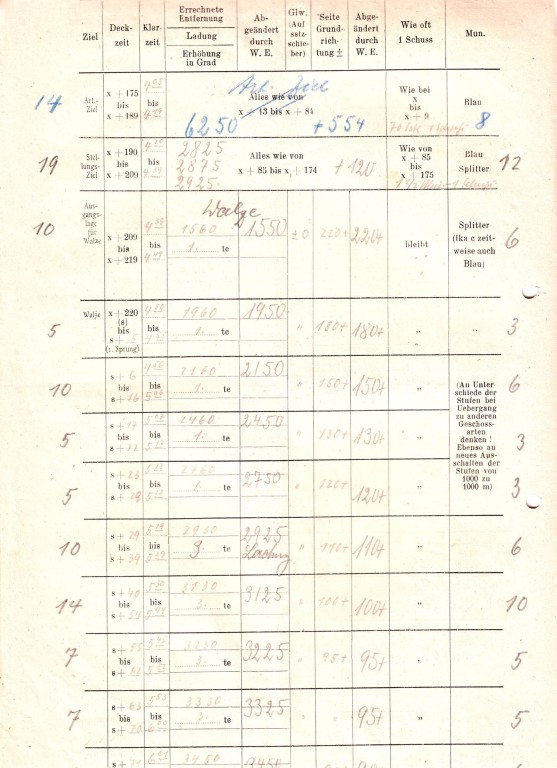 Ziel
Deck-
zeit
Klar-
zeit
Errechnete
Entfernung
Ladung
Erhöhung
in Grad
Ab-
geändert
durch
W. E.
Glw.
(Auf
satz-
schie-
ber)
Seite
Grund-
rich-
tung ±
Abge-
ändert
durch
W. E.
Wie oft
1 Schuss
Mun.
14
Art.-
Ziel
x + 175
bis
x + 189
bis
6250
Art. Ziel
Alles wie von
x + 13 bis x + 84
+ 554
Wie bei
x
bis
x + 9
Blau
8
19
Stel-
lungs-
Ziel
x + 190
bis
x + 209
bis
2825
2875
2925
Alles wie von
x + 85 bis x + 174
+ 120
Wie von
x + 85
bis
x + 175
Blau
Splitter
12
10
Aus-
gangs-
lage
für
Walze
x + 209
bis
x + 219
bis
Walze
1560
1. te
1550
± 0
220+
220+
bleibt
Splitter
(Ika c zeit-
weise auch
Blau)
6
5
Walze
x + 220
(s)
bis
s + 5
(1. Sprung)
bis
1960
1. te
1950
"
180+
180+
"
"
3
10
s + 6
bis
s + 16
bis
2160
1. te
2150
"
150+
150+
"
(An Unter-
schiede der
Stufen bei
Uebergang
zu anderen
Geschoss-
arten
denken !
Ebenso an
neues Aus-
schalten der
Stufen von
1000 zu
1000 m)
6
5
s + 17
bis
s + 22
bis
2460
1. te
2450
"
130+
130+
"
3
5
s + 23
bis
s + 28
bis
2760
1. te
2750
"
120+
120+
"
3
10
s + 29
bis
s + 39
bis
2950
3. te
2925
Ladung
"
110+
110+
"
6
14
s + 40
bis
s + 54
bis
3130
3. te
3125
"
100+
100+
"
10
7
s + 55
bis
s +
bis
3230
3. te
3225
"
95+
95+
"
5
7
s +
bis
s +
bis
3330
3. te
3325
"
"
95+
"
5
s +
3450
3450